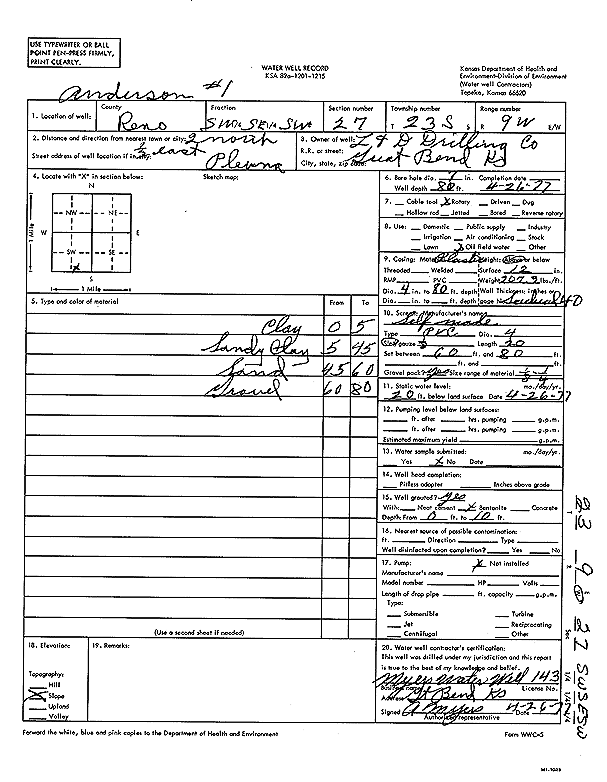 USE TYPEWRITER OR BALL
POINT PEN-PRESS FIRMLY,
PRINT CLEARLY.
WATER WELL RECORD
KSA 82a-1201-1215
Kansas Department of Health and
Environment-Division of Environment
(Water well Contractors)
Topeka, Kansas 66620
Anderson #1
1. Location of well: County Reno Fraction SW¼ SE¼ SW¼ Section number 27 Township number T 23 S S Range number R 9 W E/W
2. Distance and direction from nearest town or city: 2 north
½ east
Street address of well location if in city: Plevna
3. Owner of well: L & D Drilling Co
R.R. or street: Great Bend Ks
City, state, zip code:
4. Locate with "X" in section below: Sketch map:
N
NW NE
W E
SW SE
X
S
1 Mile
1 Mile
5. Type and color of material From To
Clay 0 5
Sandy Clay 5 45
Sand 45 60
Gravel 60 80
(Use a second sheet if needed)
6. Bore hole dia. in. Completion date
Well depth 80 ft. 4-26-77
7. Cable tool X Rotary Driven Dug
Hollow rod Jetted Bored Reverse rotary
8. Use: Domestic Public supply Industry
Irrigation Air conditioning Stock
Lawn X Oil field water Other
9. Casing: Material Plastic Height: Above or below
Threaded Welded Surface 12 in.
RMP PVC Weight lbs./ft.
Dia. 4 in. to 80 ft. depth Wall Thickness: inches or
Dia. in. to ft. depth gage No. Schedule 40
10. Screen: Manufacturer's name
Self made
Type PVC Dia. 4
Slot/gauze Length 20
Set between 60 ft. and 80 ft.
ft. and ft.
Gravel pack? yes Size range of material
11. Static water level: mo./day/yr.
20 ft. below land surface Date 4-26-77
12. Pumping level below land surfaces:
ft. after hrs. pumping g.p.m.
ft. after hrs. pumping g.p.m.
Estimated maximum yield g.p.m.
13. Water sample submitted: mo./day/yr.
Yes X No Date
14. Well head completion:
Pitless adapter Inches above grade
15. Well grouted? yes
With: Neat cement X Bentonite Concrete
Depth: From 0 ft. to 10 ft.
16. Nearest source of possible contamination:
ft. Direction Type
Well disinfected upon completion? Yes No
17. Pump: X Not installed
Manufacturer's name
Model number HP Volts
Length of drop pipe ft. capacity g.p.m.
Type:
Submersible Turbine
Jet Reciprocating
Centrifugal Other
18. Elevation:
Topography:
Hill
X Slope
Upland
Valley
19. Remarks:
20. Water well contractor's certification:
This well was drilled under my jurisdiction and this report
is true to the best of my knowledge and belief.
Myers Water Well 143
Business name License No.
Address Gt Bend Ks
Signed A Myers Date 4-26-77
Authorized representative
Forward the white, blue and pink copies to the Department of Health and Environment
Form WWC-5
23 9 W 27 SWSESW
T R Sec ¼ ¼ ¼